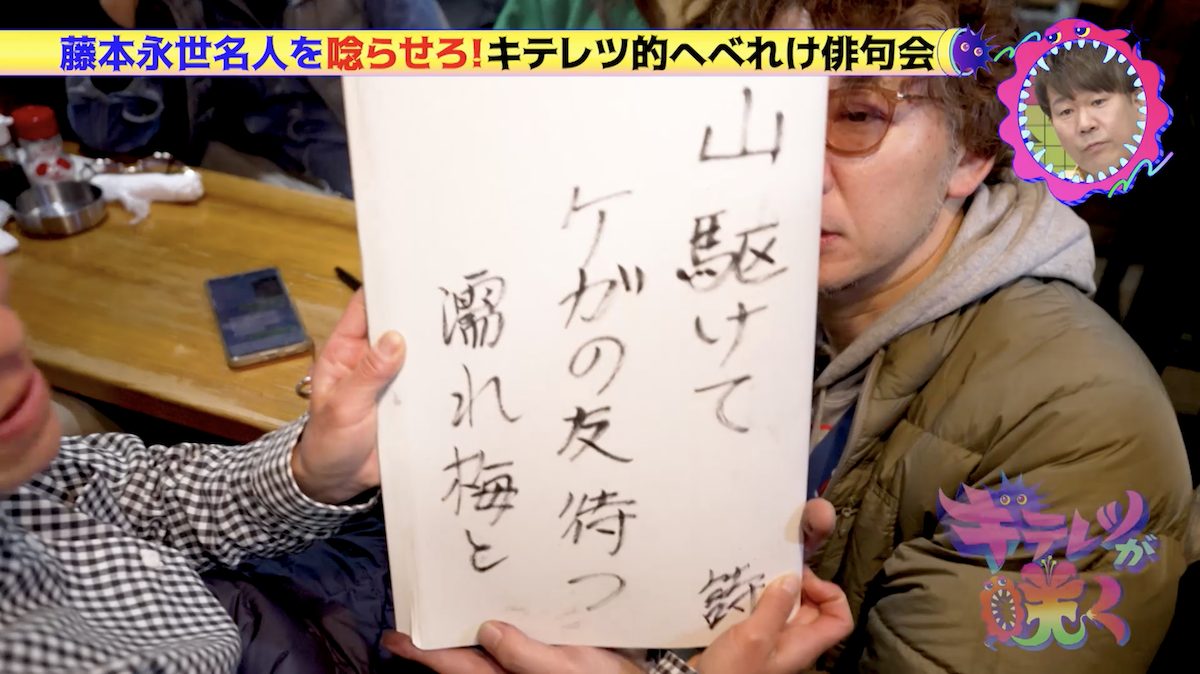 藤本永世名人を唸らせろ!キテレツ的へべれけ俳句会
山駆けて
ケガの友待つ
濡れ梅と
キテレツが
咲く